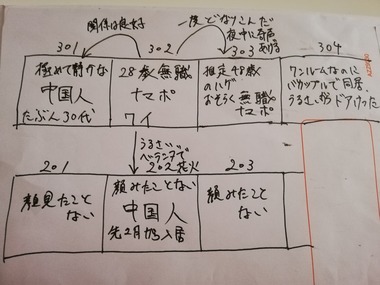 関係は良好
一度どなりこんだ
夜中に奇声
あげる
301
302
303
304
極めて静かな
中国人
たぶん30代
28歳無職
ナマポ
ワイ
推定48歳
のハゲ
おそらく無職
ナマポ
ワンルームなのに
バカップルで同居。
うるさいからドアけった
うるさい
ベランダで
花火
201
202
203
顔見たこと
ない
顔みたことない
中国人
先2月から入居
顔みたこと
ない